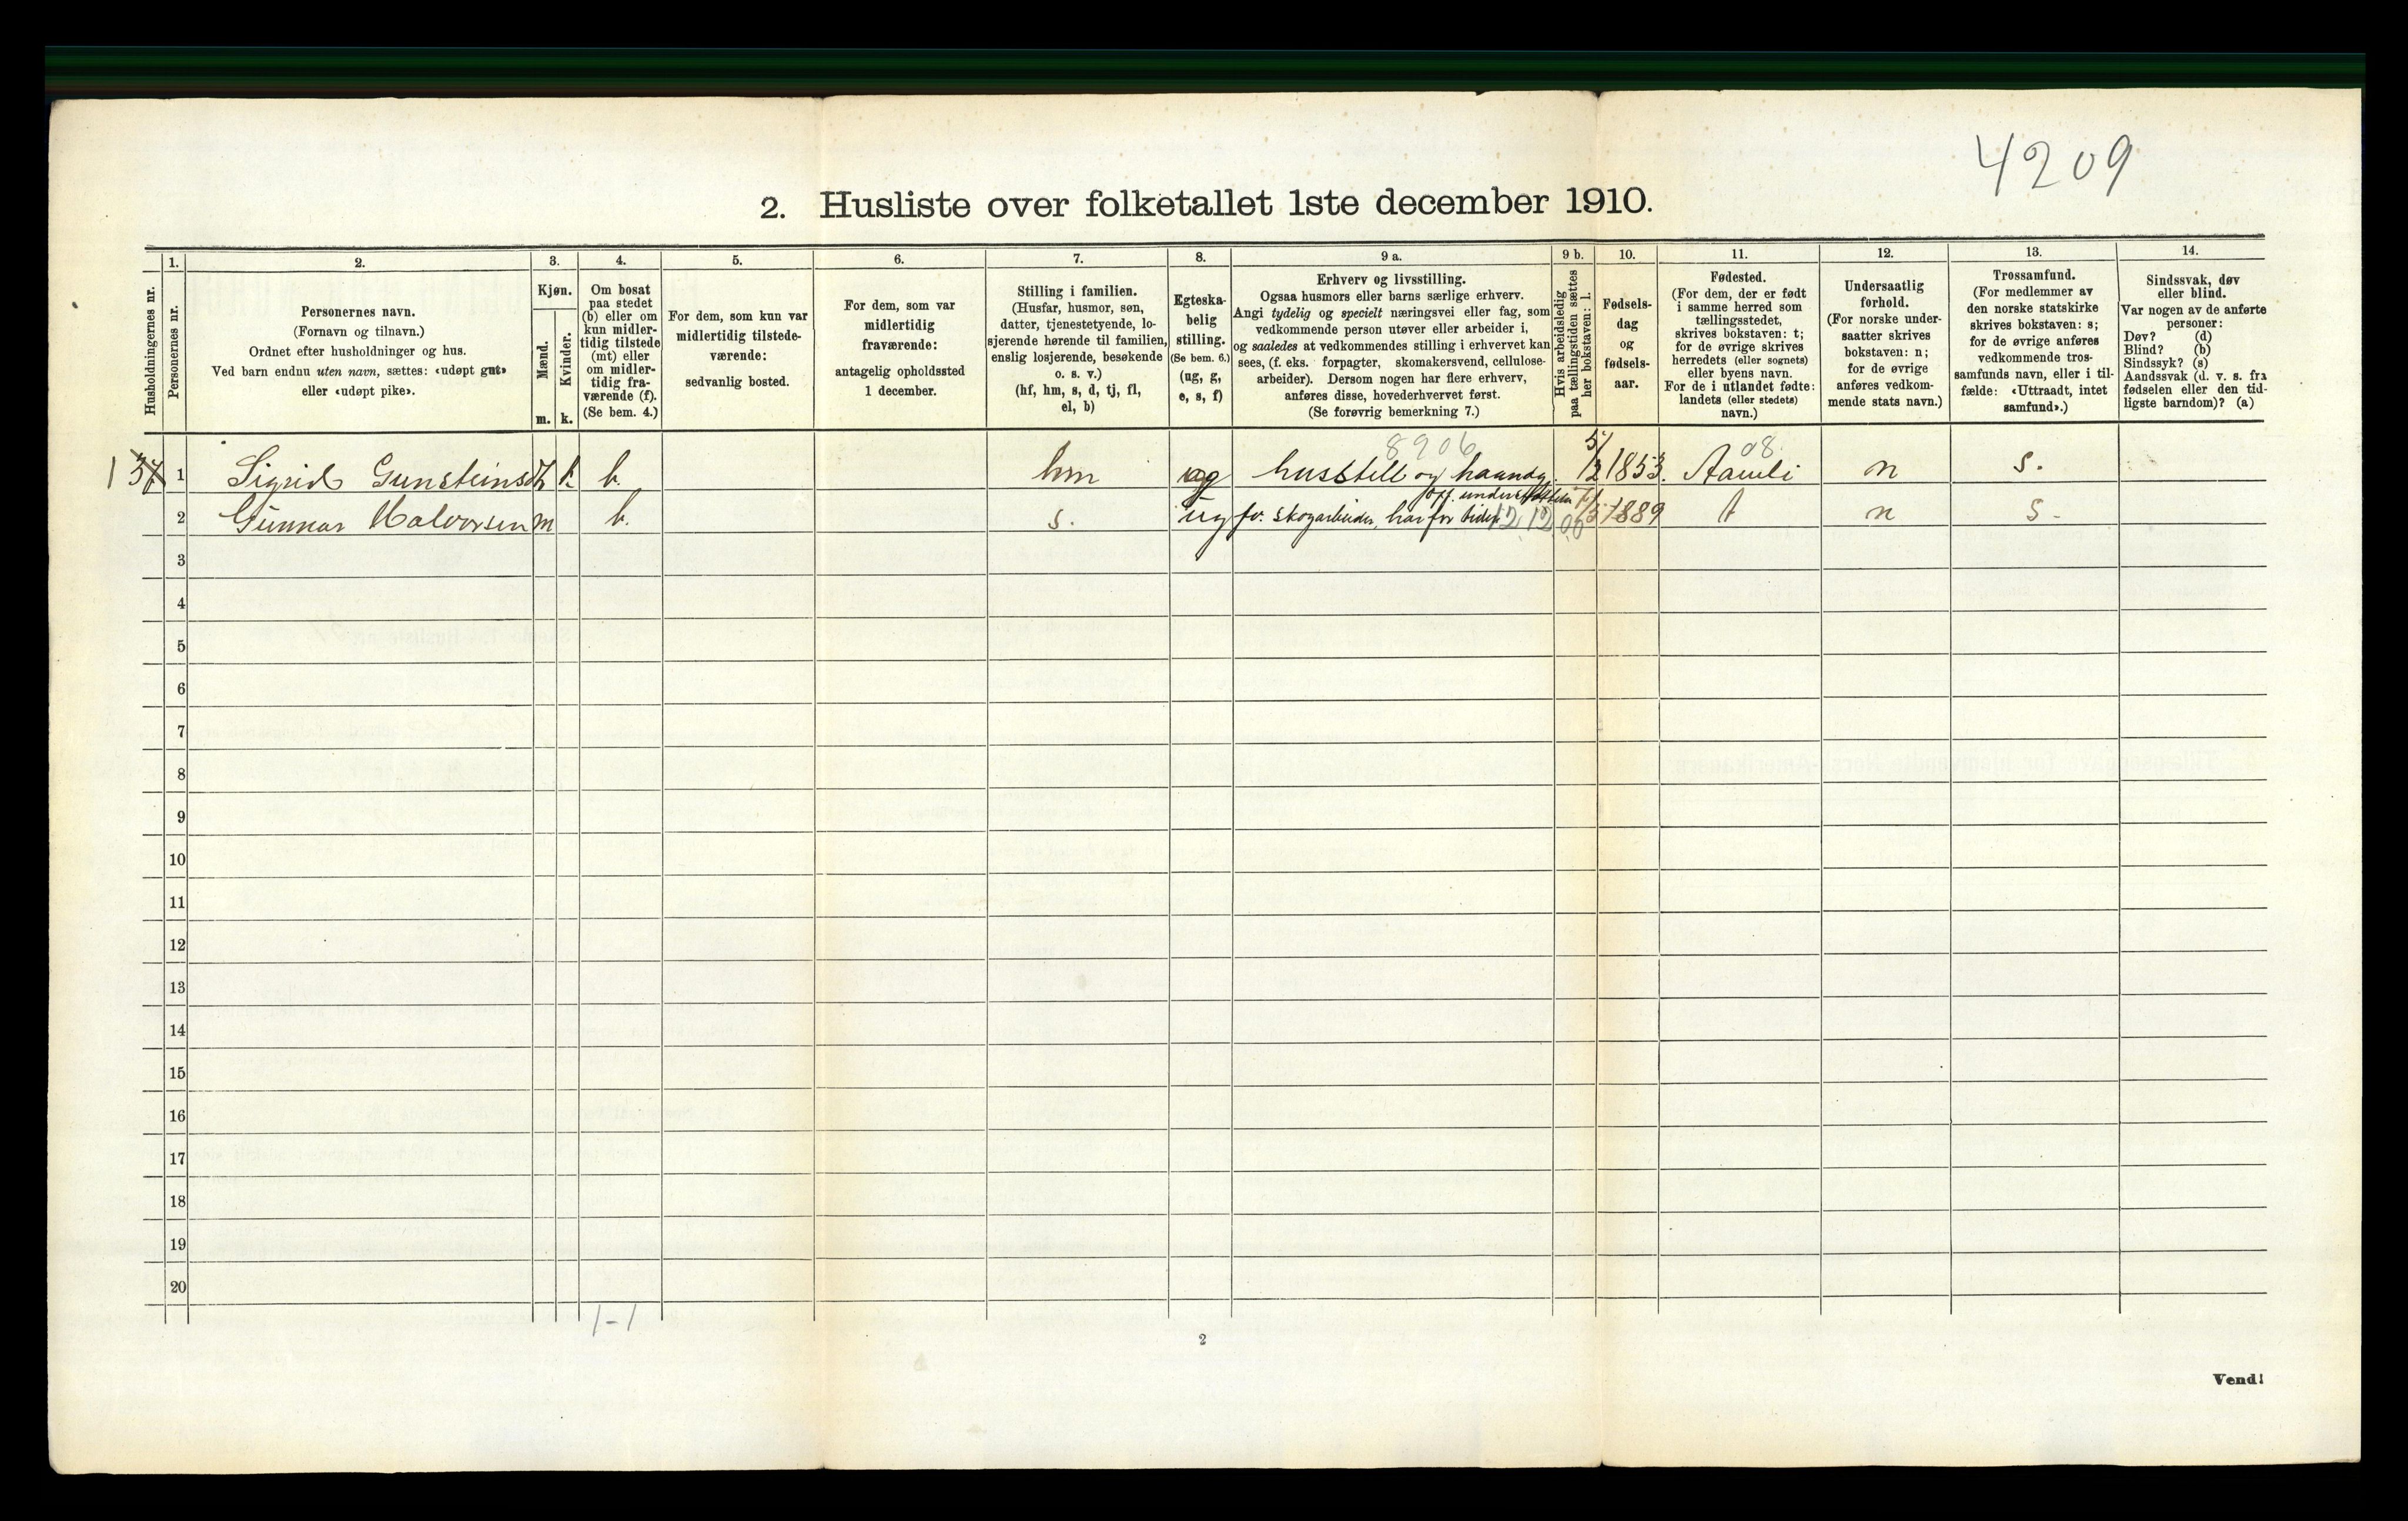 4209
2. Husliste over folketallet 1ste december 1910.
Husholdningernes nr.
1.
Personernes nr.
2.
Personernes navn.
(Fornavn og tilnavn.)
Ordnet efter husholdninger og hus.
Ved barn endnu uten navn, sættes: «udøpt gut»
eller «udøpt pike».
3.
Kjøn.
Mænd.
Kvinder.
m. k.
4.
Om bosat
paa stedet
(b) eller om
kun midler-
tidig tilstede
(mt) eller
om midler-
tidig fra-
værende (f).
(Se bem. 4.)
5.
For dem, som kun var
midlertidig tilstede-
værende:
sedvanlig bosted.
6.
For dem, som var
midlertidig
fraværende:
antagelig opholdssted
1 december.
7.
Stilling i familien.
(Husfar, husmor, søn,
datter, tjenestetyende, lo-
sjerende hørende til familien,
enslig losjerende, besøkende
o. s. v.)
(hf, hm, s, d, tj, fl,
el, b)
8.
Egteska-
belig
stilling.
(Se bem. 6.)
(ug, g,
e, s, f)
9 a.
Erhverv og livsstilling.
Ogsaa husmors eller barns særlige erhverv.
Angi tydelig og specielt næringsvei eller fag, som
vedkommende person utøver eller arbeider i,
og saaledes at vedkommendes stilling i erhvervet kan
sees, (f. eks. forpagter, skomakersvend, cellulose-
arbeider). Dersom nogen har flere erhverv,
anføres disse, hovederhvervet først.
(Se forøvrig bemerkning 7.)
9 b.
Hvis arbeidsledig
paa tællingstiden sættes
her bokstaven: l.
10.
Fødsels-
dag
og
fødsels-
aar.
11.
Fødested.
(For dem, der er født
i samme herred som
tællingsstedet,
skrives bokstaven: t;
for de øvrige skrives
herredets (eller sognets)
eller byens navn.
For de i utlandet fødte:
landets (eller stedets)
navn.)
12.
Undersaatlig
forhold.
(For norske under-
saatter skrives
bokstaven: n;
for de øvrige
anføres vedkom-
mende stats navn.)
13.
Trossamfund.
(For medlemmer av
den norske statskirke
skrives bokstaven: s;
for de øvrige anføres
vedkommende tros-
samfunds navn, eller i til-
fælde: «Uttraadt, intet
samfund».)
14.
Sindssvak, døv
eller blind.
Var nogen av de anførte
personer:
Døv? (d)
Blind? (b)
Sindssyk? (s)
Aandssvak (d. v. s. fra
fødselen eller den tid-
ligste barndom)? (a)
8906 08.
1 Sigrid k b. hm husstell og 5/2 1853. Aamli n s.
2 Gunnar Halvorsen m b. s. ug fv. skogarbeider, har for tiden 1889 t n s.
12 12 00
3
4
5
6
7
8
9
10
11
12
13
14
15
16
17
18
19
20
1-1
2
Vend!